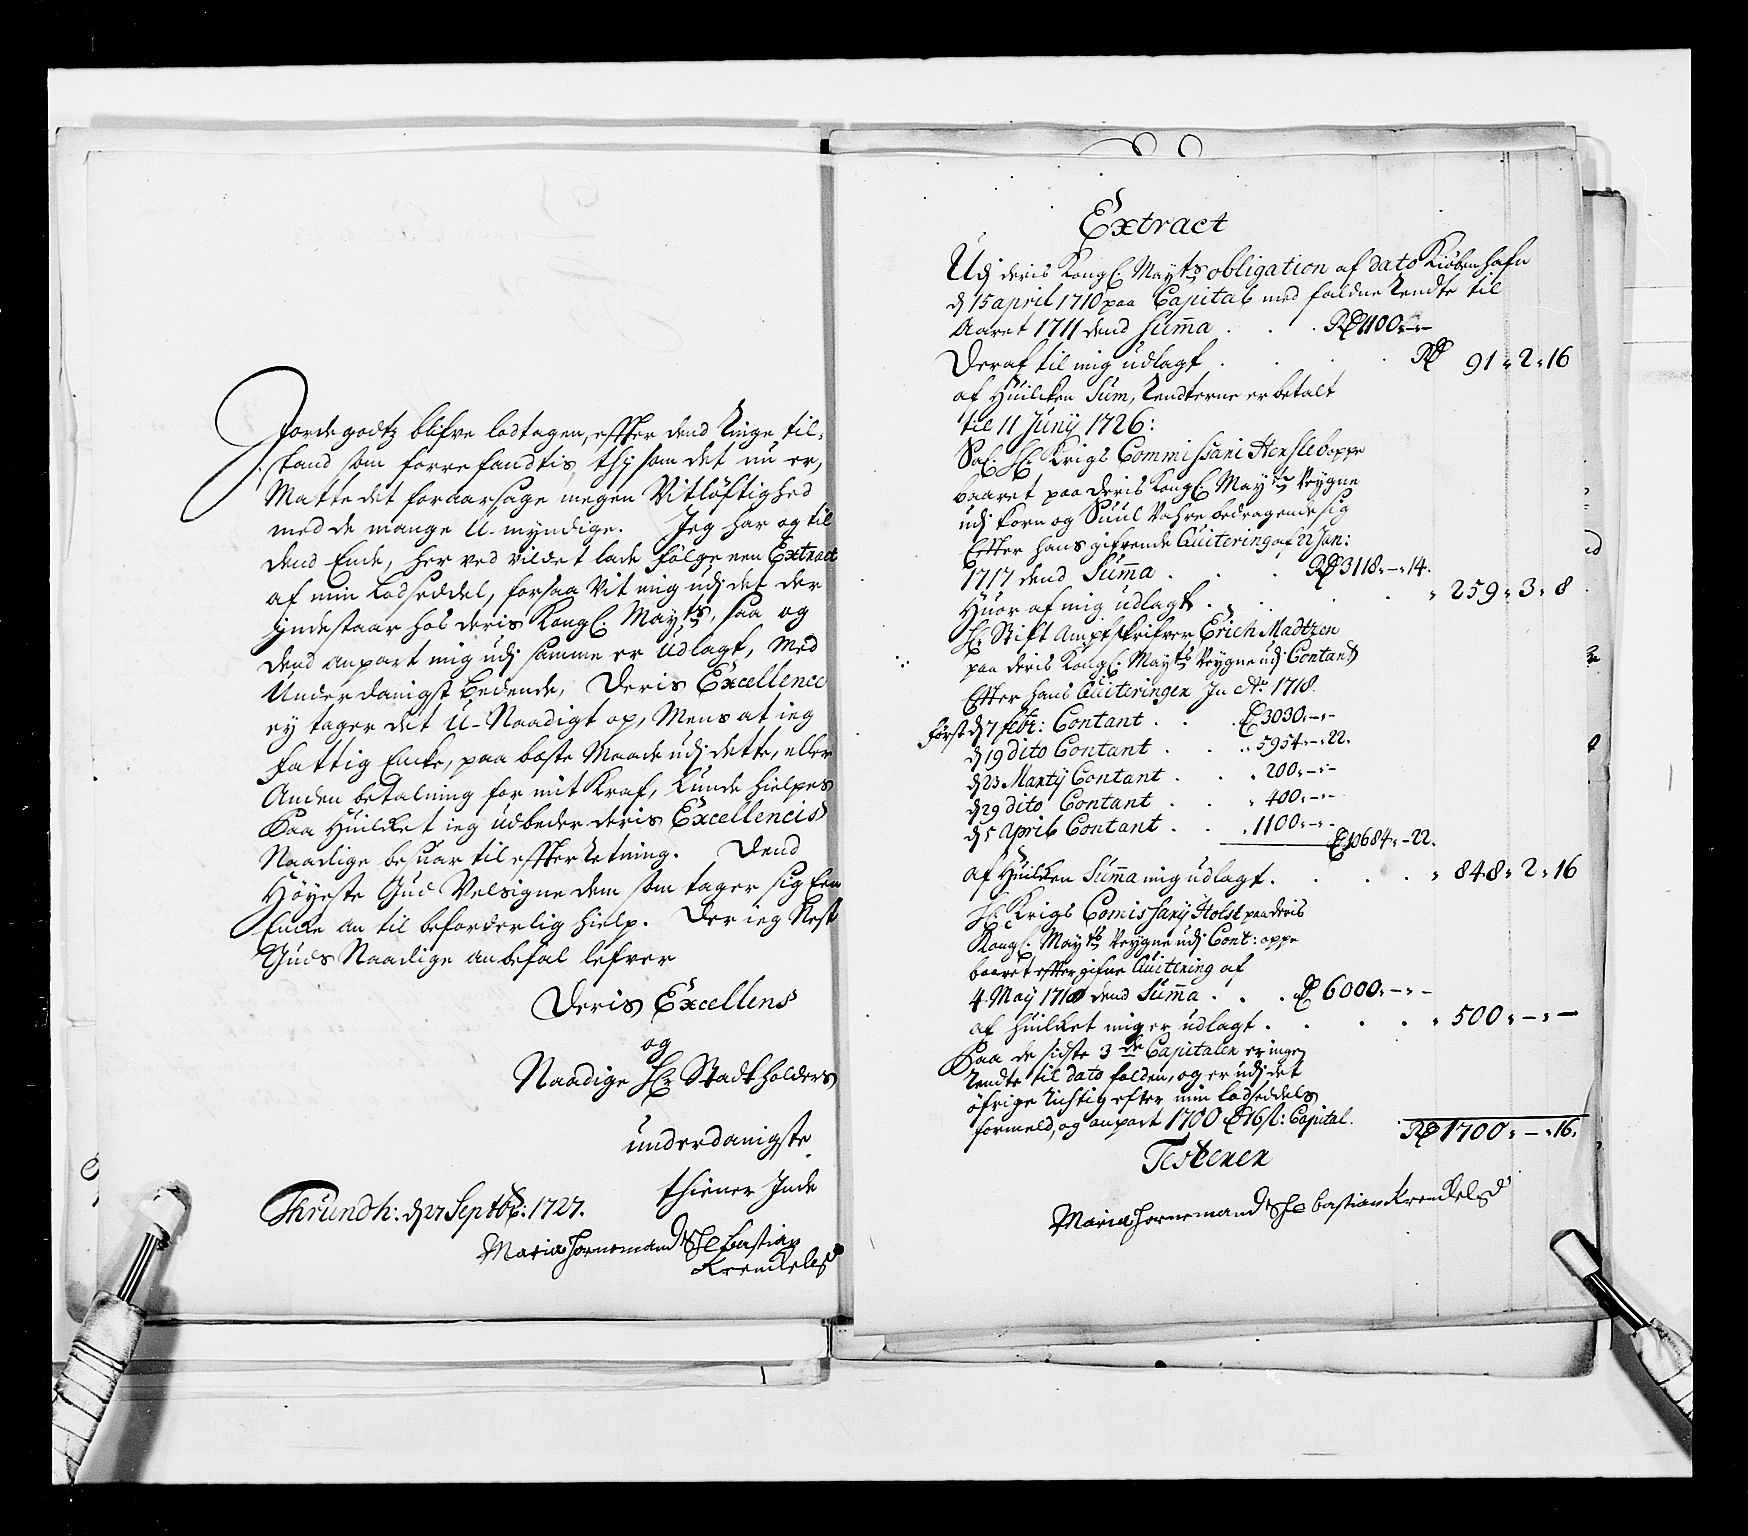 Jordegodtz blifve lodtagen, effter dend ringe til-
stand som forrefandtis, thj som det nu er,
Matte det foraarsage megen Vitløftighed
med de mange U-myndige. Jeg har og til
dend Ende, her ved vildet lade følge een Extract
af min Lodseddel, forsaa vit mig udj det der
Jndestaar hos deris Kongl: Mayts, saa og
dend anpart mig udj samme er udlagt, Med
Underdanigst bedende, Deris Excellence
ey tager det U-Naadigt op, Mens at ieg
fattig Encke, paa beste Maade udj dette, eller
Anden betalning for mit Kraf, kunde hielpes
Paa Huilket ieg udbeder deris Excellencis
Naadige besuar til effterretning. Dend
Høyeste Gud Velsigne dem som tager sig Een
Encke an til beforderlig hielp. Der ieg Nest
Guds Naadige anbefal lefver
Deris Excellens
og
Naadige Hr Stadtholders
underdanigste
thiener Inde
Thrundh: d 27 Septbr: 1727.
Maria Hornemand Sl Sebastian
Krenckels
Extract
Udj deris Kongl: Mayts obligation af dato Kiøbenhafn
d 15 april 1710 paa Capital med faldne Rendte til
Aaret 1711 dend Sum̄a . . . Rd 1100:-:-
Deraf til mig udlagt . . . Rd 91:2:16
af Huilcken Sum, Rendterne er betalt
til 11 Junij 1726:
Sal: Hr Krigs Commissari Hensle oppe
baaret paa deris Kongl: Mayts Veygne
udj korn og Suul Vahre bedragende sig
Effter hans gifvende Quitering af 22 Jan:
1717 dend Sum̄a . . . Rd 3118:-:14.
Huor af mig udlagt . . . " 259:3:8
Hr Stift Ampt skrifver Erich Madtzen
paa deris Kongl: Mayts Veygne udj Contant
Effter hans Quiteringer Jn Ao 1718.
først d 7 febr: Contant . . Rd 3030:-:-
d 19 dito Contant . . " 5954:-:22.
d 23 Marty Contant . . " 200:-:-
d 29 dito Contant . . " 400:-:-
d 5 April Contant . . " 1100:-:-
Rd 10684:-22.
af Huilken Sum̄a mig udlagt . . . " 848:2:16
Hr Krigs Comissary Holst paa deris
Kongl: Mayts Veygne udj Cont: oppe
baaret effter gifne Quitering af
4 May 1718 dend Sum̄a . . . Rd 6000:-:-
af huilket mig er udlagt . . . " 500:-:-
Paa de sidste 3de Capitaler er ingen
Rendte til dato falden, og er udj det
øfrige Richtig efter min Lodseddels
formeld, og anpart 1700 Rd 16 s: Capital.
Rd 1700:-:16.
Testerer
Maria Hornemand Sl Sebastian Krenckels